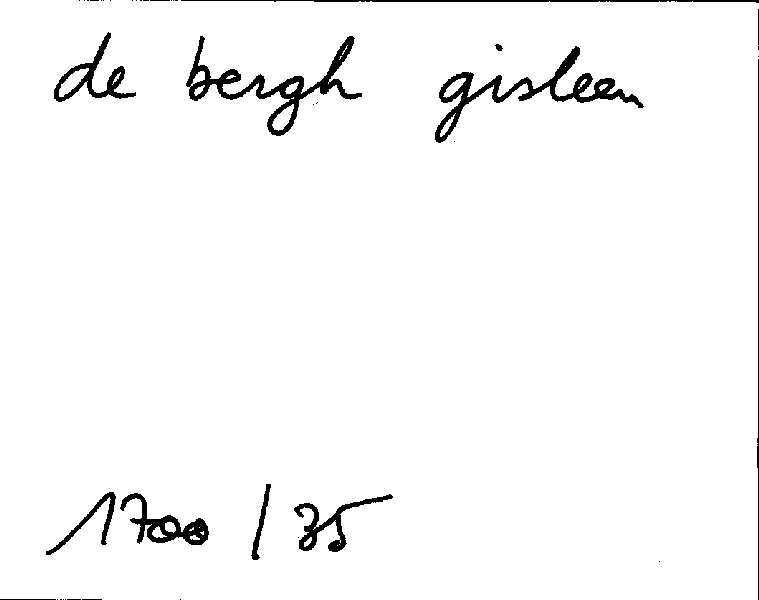 de bergh gisleen
1700 / 35